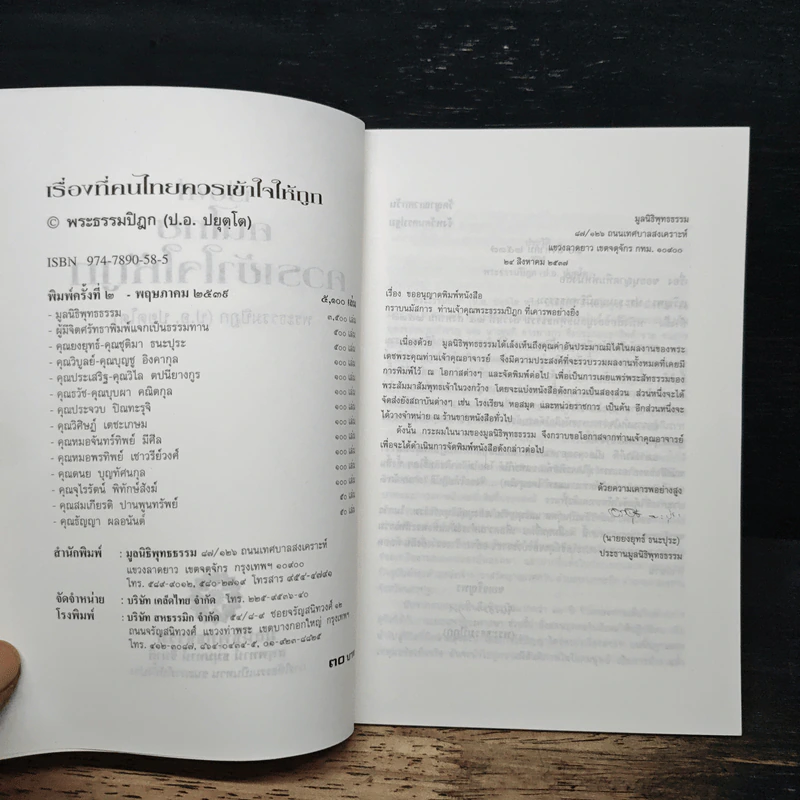 เรื่องที่คนไทยควรเข้าใจให้ถูก
© พระธรรมปิฎก (ป.อ. ปยุตฺโต)
ISBN 974-7890-58-5
พิมพ์ครั้งที่ ๒ - พฤษภาคม ๒๕๓๙ ๕,๑๐๐ เล่ม
- มูลนิธิพุทธธรรม ๓,๕๐๐ เล่ม
- ผู้มีจิตศรัทธาพิมพ์แจกเป็นธรรมทาน ๕๐๐ เล่ม
- คุณยงยุทธ์-คุณชุติมา ธนะปุระ ๕๐๐ เล่ม
- คุณวิบูลย์-คุณบุญชู อิงคากุล ๑๐๐ เล่ม
- คุณประเสริฐ-คุณวิไล ตปนียางกูร ๑๐๐ เล่ม
- คุณธวัช-คุณบุบผา คณิตกุล ๑๐๐ เล่ม
- คุณประจวบ ปิณฑะรุจิ ๑๐๐ เล่ม
- คุณวิศิษฎ์ เตชะเกษม ๑๐๐ เล่ม
- คุณหมอจันทร์ทิพย์ มีศีล ๑๐๐ เล่ม
- คุณหมอพรทิพย์ เชาวรีย์วงศ์ ๑๐๐ เล่ม
- คุณดนย บุญทัศนกุล ๑๐๐ เล่ม
- คุณจุไรรัตน์ พิทักษ์สังข์ ๑๐๐ เล่ม
- คุณสมเกียรติ ปานพูนทรัพย์ ๕๐ เล่ม
- คุณธัญญา ผลอนันต์ ๕๐ เล่ม
สำนักพิมพ์ : มูลนิธิพุทธธรรม ๘๗/๑๒๖ ถนนเทศบาลสงเคราะห์
แขวงลาดยาว เขตจตุจักร กรุงเทพฯ ๑๐๙๐๐
โทร. ๕๘๙-๙๐๑๒, ๕๘๐-๒๗๑๙ โทรสาร ๙๕๔-๔๗๙๑
จัดจำหน่าย : บริษัท เคล็ดไทย จำกัด โทร. ๒๒๕-๙๕๓๖-๔๐
โรงพิมพ์ : บริษัท สหธรรมิก จำกัด ๕๔/๘-๙ ซอยจรัญสนิทวงศ์ ๑๒
ถนนจรัญสนิทวงศ์ แขวงท่าพระ เขตบางกอกใหญ่ กรุงเทพฯ
โทร. ๔๑๒-๓๐๘๗, ๘๖๔-๐๔๓๔-๕, ๐๑-๙๒๓-๘๘๒๕
๓๐ บาท
มูลนิธิพุทธธรรม
๘๗/๑๒๖ ถนนเทศบาลสงเคราะห์
แขวงลาดยาว เขตจตุจักร กทม. ๑๐๙๐๐
๒๔ สิงหาคม ๒๕๓๗
เรื่อง ขออนุญาตพิมพ์หนังสือ
กราบนมัสการ ท่านเจ้าคุณพระธรรมปิฎก ที่เคารพอย่างยิ่ง
เนื่องด้วย มูลนิธิพุทธธรรมได้เล็งเห็นถึงคุณค่าอันประมาณมิได้ในผลงานของพระ
เดชพระคุณท่านเจ้าคุณอาจารย์ จึงมีความประสงค์ที่จะรวบรวมผลงานทั้งหมดที่เคยมี
การพิมพ์ไว้ ณ โอกาสต่างๆ และจัดพิมพ์ต่อไป เพื่อเป็นการเผยแพร่พระสัทธรรมของ
พระสัมมาสัมพุทธเจ้าในวงกว้าง โดยจะแบ่งหนังสือดังกล่าวเป็นสองส่วน ส่วนหนึ่งจะได้
จัดส่งยังสถาบันต่างๆ เช่น โรงเรียน หอสมุด และหน่วยราชการ เป็นต้น อีกส่วนหนึ่งจะ
ได้วางจำหน่าย ณ ร้านขายหนังสือทั่วไป
ดังนั้น กระผมในนามของมูลนิธิพุทธธรรม จึงกราบขอโอกาสจากท่านเจ้าคุณอาจารย์
เพื่อจะได้ดำเนินการจัดพิมพ์หนังสือดังกล่าวต่อไป
ด้วยความเคารพอย่างสูง
(นายยงยุทธ์ ธนะปุระ)
ประธานมูลนิธิพุทธธรรม